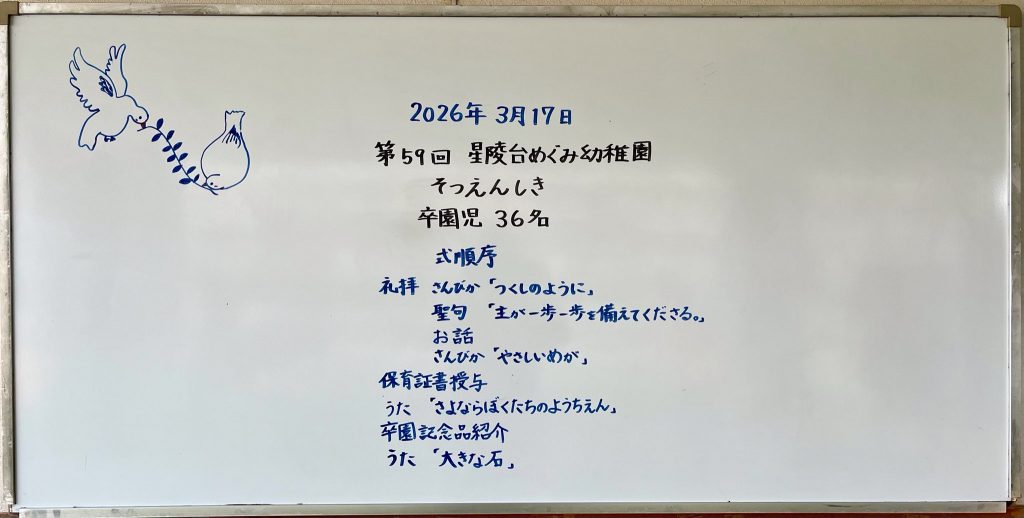 2026年 3月17日
第59回 星陵台めぐみ幼稚園
そつえんしき
卒園児 36名
式順序
礼拝 さんびか「つくしのように」
聖句 「主が一歩一歩を備えてくださる。」
お話
さんびか「やさしいめが」
保育証書授与
うた 「さよならぼくたちのようちえん」
卒園記念品紹介
うた 「大きな石」